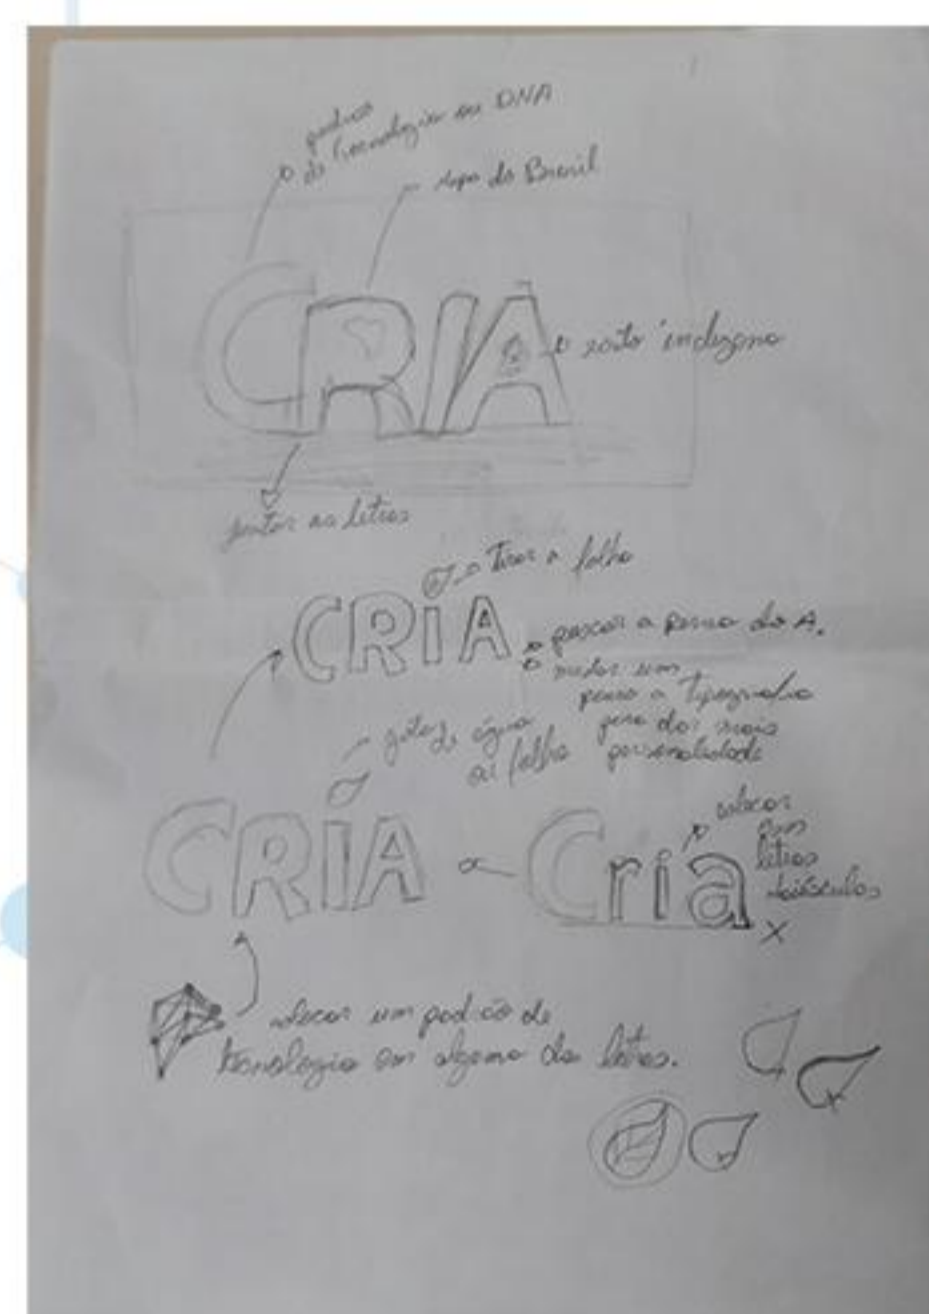 padrão
de Tecnologia ou DNA
mapa do Brasil
CRIA
rosto indígena
juntar as letras
tirar a folha
CRIA
puxar a perna do A.
mudar um
pouco a tipografia
para dar mais
personalidade
gota de água
ou folha
CRIA
Cria
colocar
em
letras
maiúsculas
X
colocar um padrão de
tecnologia em alguma das letras.